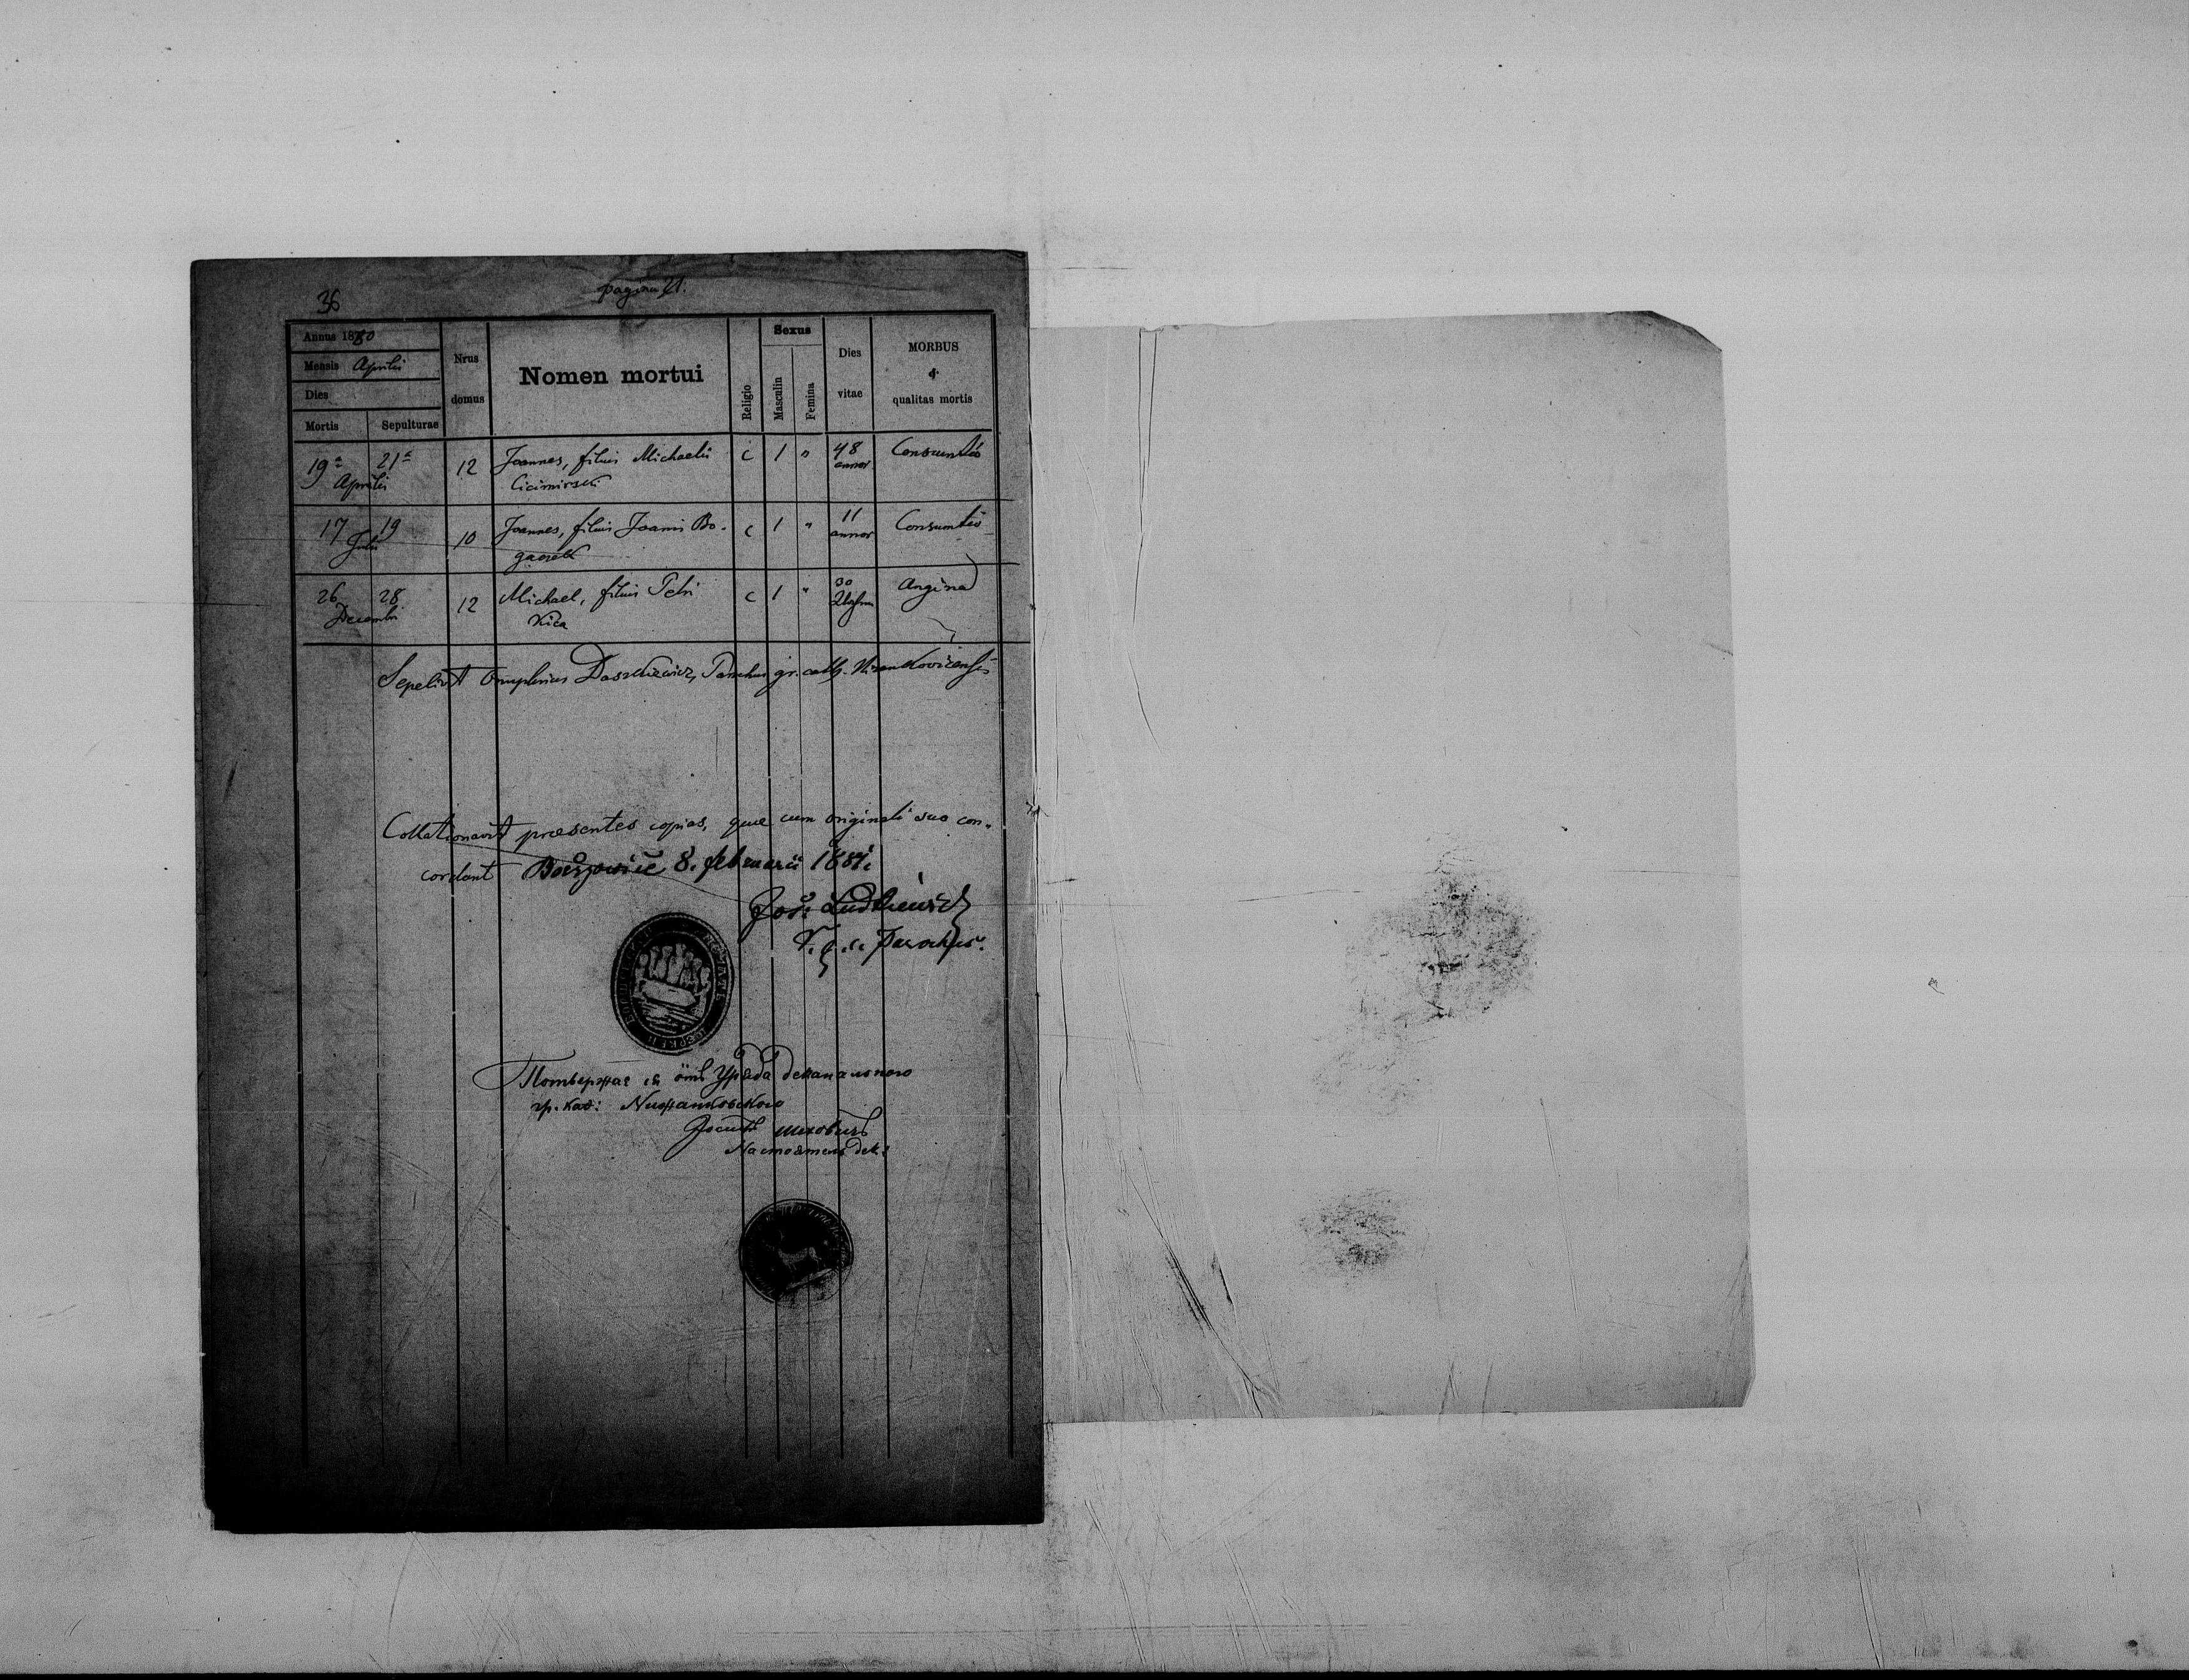 36
pagina 21.
Annus 1880
Mensis Aprilis
Dies
Mortis Sepulturae
Nrus domus
Nomen mortui
Religio
Sexus
Masculin Femina
Dies vitae
MORBUS
&
qualitas mortis
19a 21a 12 Joannes, filius Michaelis c 1 " 48 Consumtio
Aprilis annor
17 19 10 Joannes, filius Joannis Bo- c 1 " 11 Consumtio
Julii annor
26 28 12 Michael, filius Petri c 1 " 30 Angina
Decembri Kica
Sepelivit Onuphrius Daszkiewicz, Parochus gr. cath. Nizankovicensis
Collationavit praesentes copias, quae cum originali suo con-
cordant 8. februarii 1881.
Jos:
Parochus.
ЦЕРКВИ
Потверждає ся отъ Уряда деканального
гр. кат: Нижанковского
Іосифъ
дек: